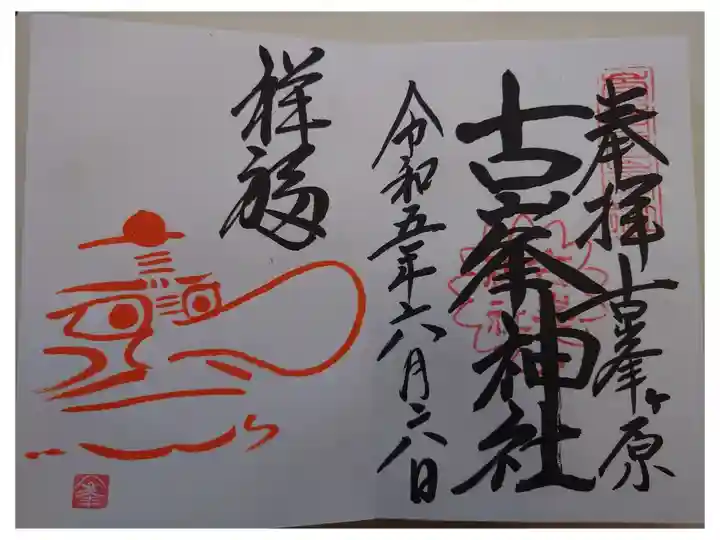 奉拝 古峯ヶ原
古峯神社
令和五年六月六日
祥福